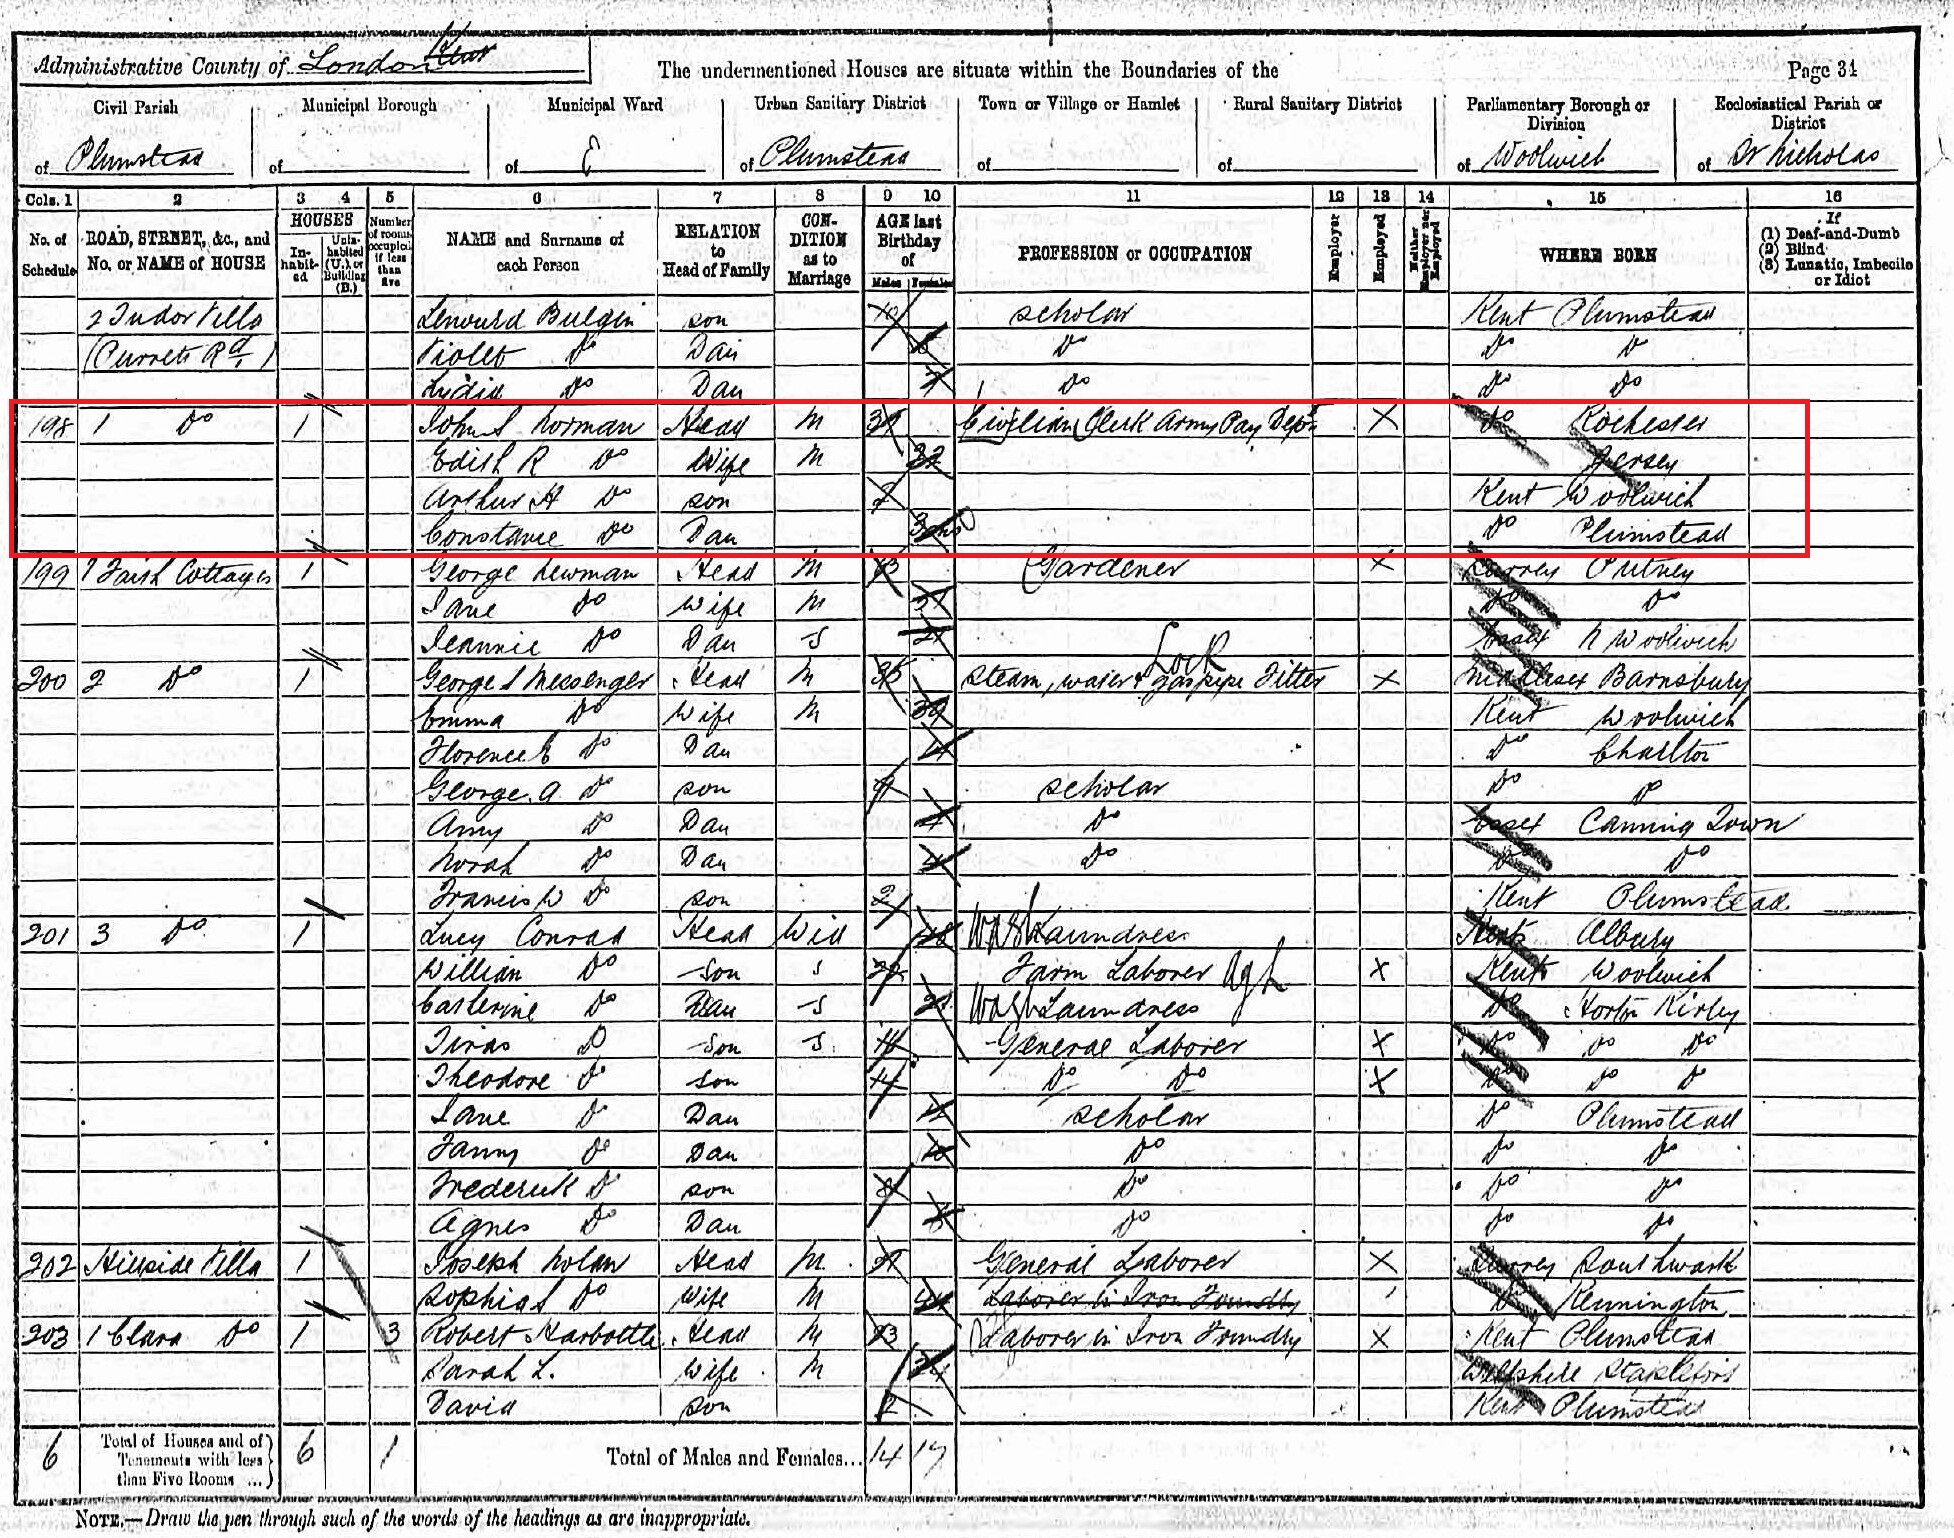 Administrative County of London Kent
The undermentioned Houses are situate within the Boundaries of the
Page 31
Civil Parish
of Plumstead
Municipal Borough
of
Municipal Ward
of E
Urban Sanitary District
of Plumstead
Town or Village or Hamlet
of
Rural Sanitary District
of
Parliamentary Borough or Division
of Woolwich
Ecclesiastical Parish or District
of St Nicholas
Cols. 1 2 3 4 5 6 7 8 9 10 11 12 13 14 15 16
No. of Schedule
ROAD, STREET, &c., and No. or NAME of HOUSE
HOUSES
Inhabited
Uninhabited (U.) or Building (B.)
Number of rooms occupied if less than five
NAME and Surname of each Person
RELATION to Head of Family
CONDITION as to Marriage
AGE last Birthday of
Males Females
PROFESSION or OCCUPATION
Employer
Employed
Neither Employer nor Employed
WHERE BORN
If
(1) Deaf-and-Dumb
(2) Blind
(3) Lunatic, Imbecile or Idiot
2 Tudor Villa Bulgin son scholar Kent Plumstead
Violet Do Dau Do Do Do
Lydia Do Dau 7 Do Do Do
198 1 Do 1 John S Norman Head M Civilian Clerk Army Pay Dept X Do Rochester
Edith R Do Wife M 32 Jersey
Arthur H Do son Kent Woolwich
Constance Do Dau 3 mos Do Plumstead
199 1 Faish Cottages 1 George Newman Head M Gardener X Surrey Putney
Jane Do Wife M Do Do
Jeannie Do Dau S 21 Essex N Woolwich
200 2 Do 1 George S Messenger Head M Steam, water & gaspipe Fitter X Middlesex Barnsbury
Emma Do Wife M 39 Kent Woolwich
Florence E Do Dau Do Charlton
George A Do son 9 scholar Do Do
Amy Do Dau Do Essex Canning Town
Norah Do Dau 4 Do Do Do
Francis W Do son 2 Kent Plumstead
201 3 Do 1 Lucy Conrad Head Wid 48 Wash Laundress Herts Albury
William Do son S 22 Farm Laborer Ag L X Kent Woolwich
Catherine Do Dau S Wash Laundress Do Horton Kirby
Titus Do son S General Laborer X Do Do Do
Theodore Do son 14 Do Do X Do Do Do
Jane Do Dau scholar Do Plumstead
Fanny Do Dau 10 Do Do Do
Frederick Do son Do Do Do
Agnes Do Dau Do Do Do
202 Hillside Villa 1 Joseph Nolan Head M General Laborer X Surrey Southwark
Sophia S Do Wife M 44 Laborer in Iron Foundry Do Kennington
203 1 Clara Do 1 3 Robert Harbottle Head M 23 Laborer in Iron Foundry X Kent Plumstead
Sarah L. Wife M 24 Wiltshire Stapleford
David son 2 Kent Plumstead
6 Total of Houses and of Tenements with less than Five Rooms ... 6 1 Total of Males and Females... 14 17
NOTE.—Draw the pen through such of the words of the headings as are inappropriate.